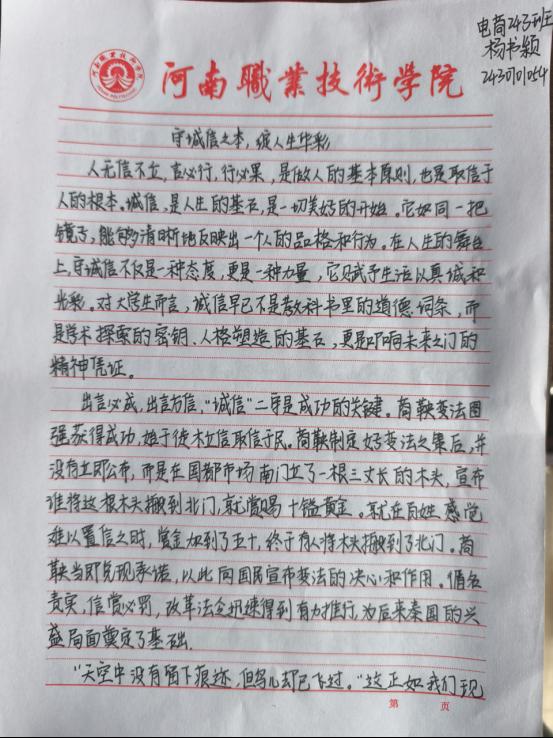 电商243班
杨书颖
2430101054
河南職業技術学院
守诚信之本，绽人生华彩
人无信不立，言必行，行必果，是做人的基本原则，也是取信于
人的根本。诚信，是人生的基石，是一切美好的开始。它如同一把
镜子，能够清晰地反映出一个人的品格和行为。在人生的舞台
上，守诚信不仅是一种态度，更是一种力量，它赋予生活以真诚和
光彩。对大学生而言，诚信早已不是教科书里的道德词条，而
是学术探索的密钥、人格塑造的基石，更是叩响未来之门的
精神凭证。
出言必成，出言方信，“诚信”二字是成功的关键。商鞅变法图
强获得成功，始于徙木立信取信于民。商鞅制定好变法之策后，并
没有立即公布，而是在国都市场南门立了一根三丈长的木头，宣布
谁将这根木头搬到北门，就赏赐十镒黄金。就在百姓感觉
难以置信之时，赏金加到了五十，终于有人将木头搬到了北门。商
鞅当即兑现承诺，以此向国民宣布变法的决心和作用。循名
责实，信赏必罚，改革法令迅速得到有力推行，为后来秦国的兴
盛局面奠定了基础.
“天空中没有留下痕迹，但鸟儿却已飞过。”这正如我们现
第 页